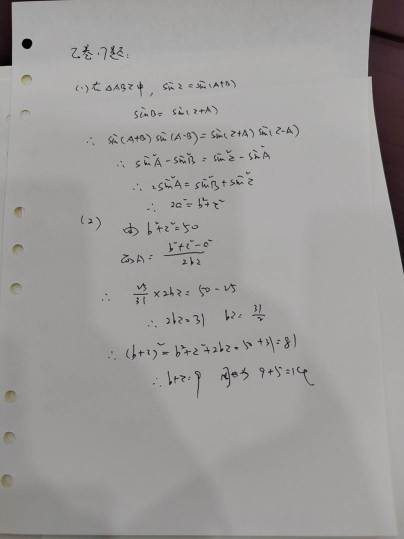 乙卷.17题:
(1) 在△ABC中, sin C = sin(A+B)
sinB = sin(C+A)
∴ sin(A+B) sin(A-B) = sin(C+A) sin(C-A)
∴ sin²A - sin²B = sin²C - sin²A
∴ 2sin²A = sin²B + sin²C
∴ 2a² = b² + c²
(2) 由 b²+c²=50
cosA = (b²+c²-a²)/(2bc)
∴ 25/31 × 2bc = 50 - 25
∴ 2bc = 31 bc = 31/2
∴ (b+c)² = b²+c²+2bc = 50+31 = 81
∴ b+c = 9 周长为 9+5=14